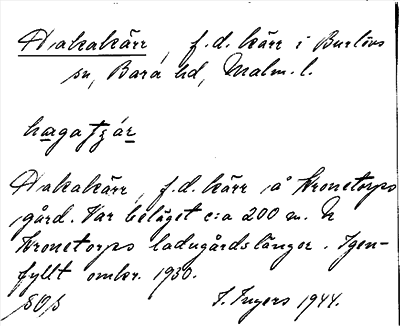 Hakakärr, f.d. kärr i Burlövs
sn, Bara hd, Malm. l.
Hakakärr, f.d. kärr å Kronetorps
gård. Var beläget c:a 200 m. N
Kronetorps ladugårdslängor. Igen-
fyllt omkr. 1930.
I. Ingers 1944.